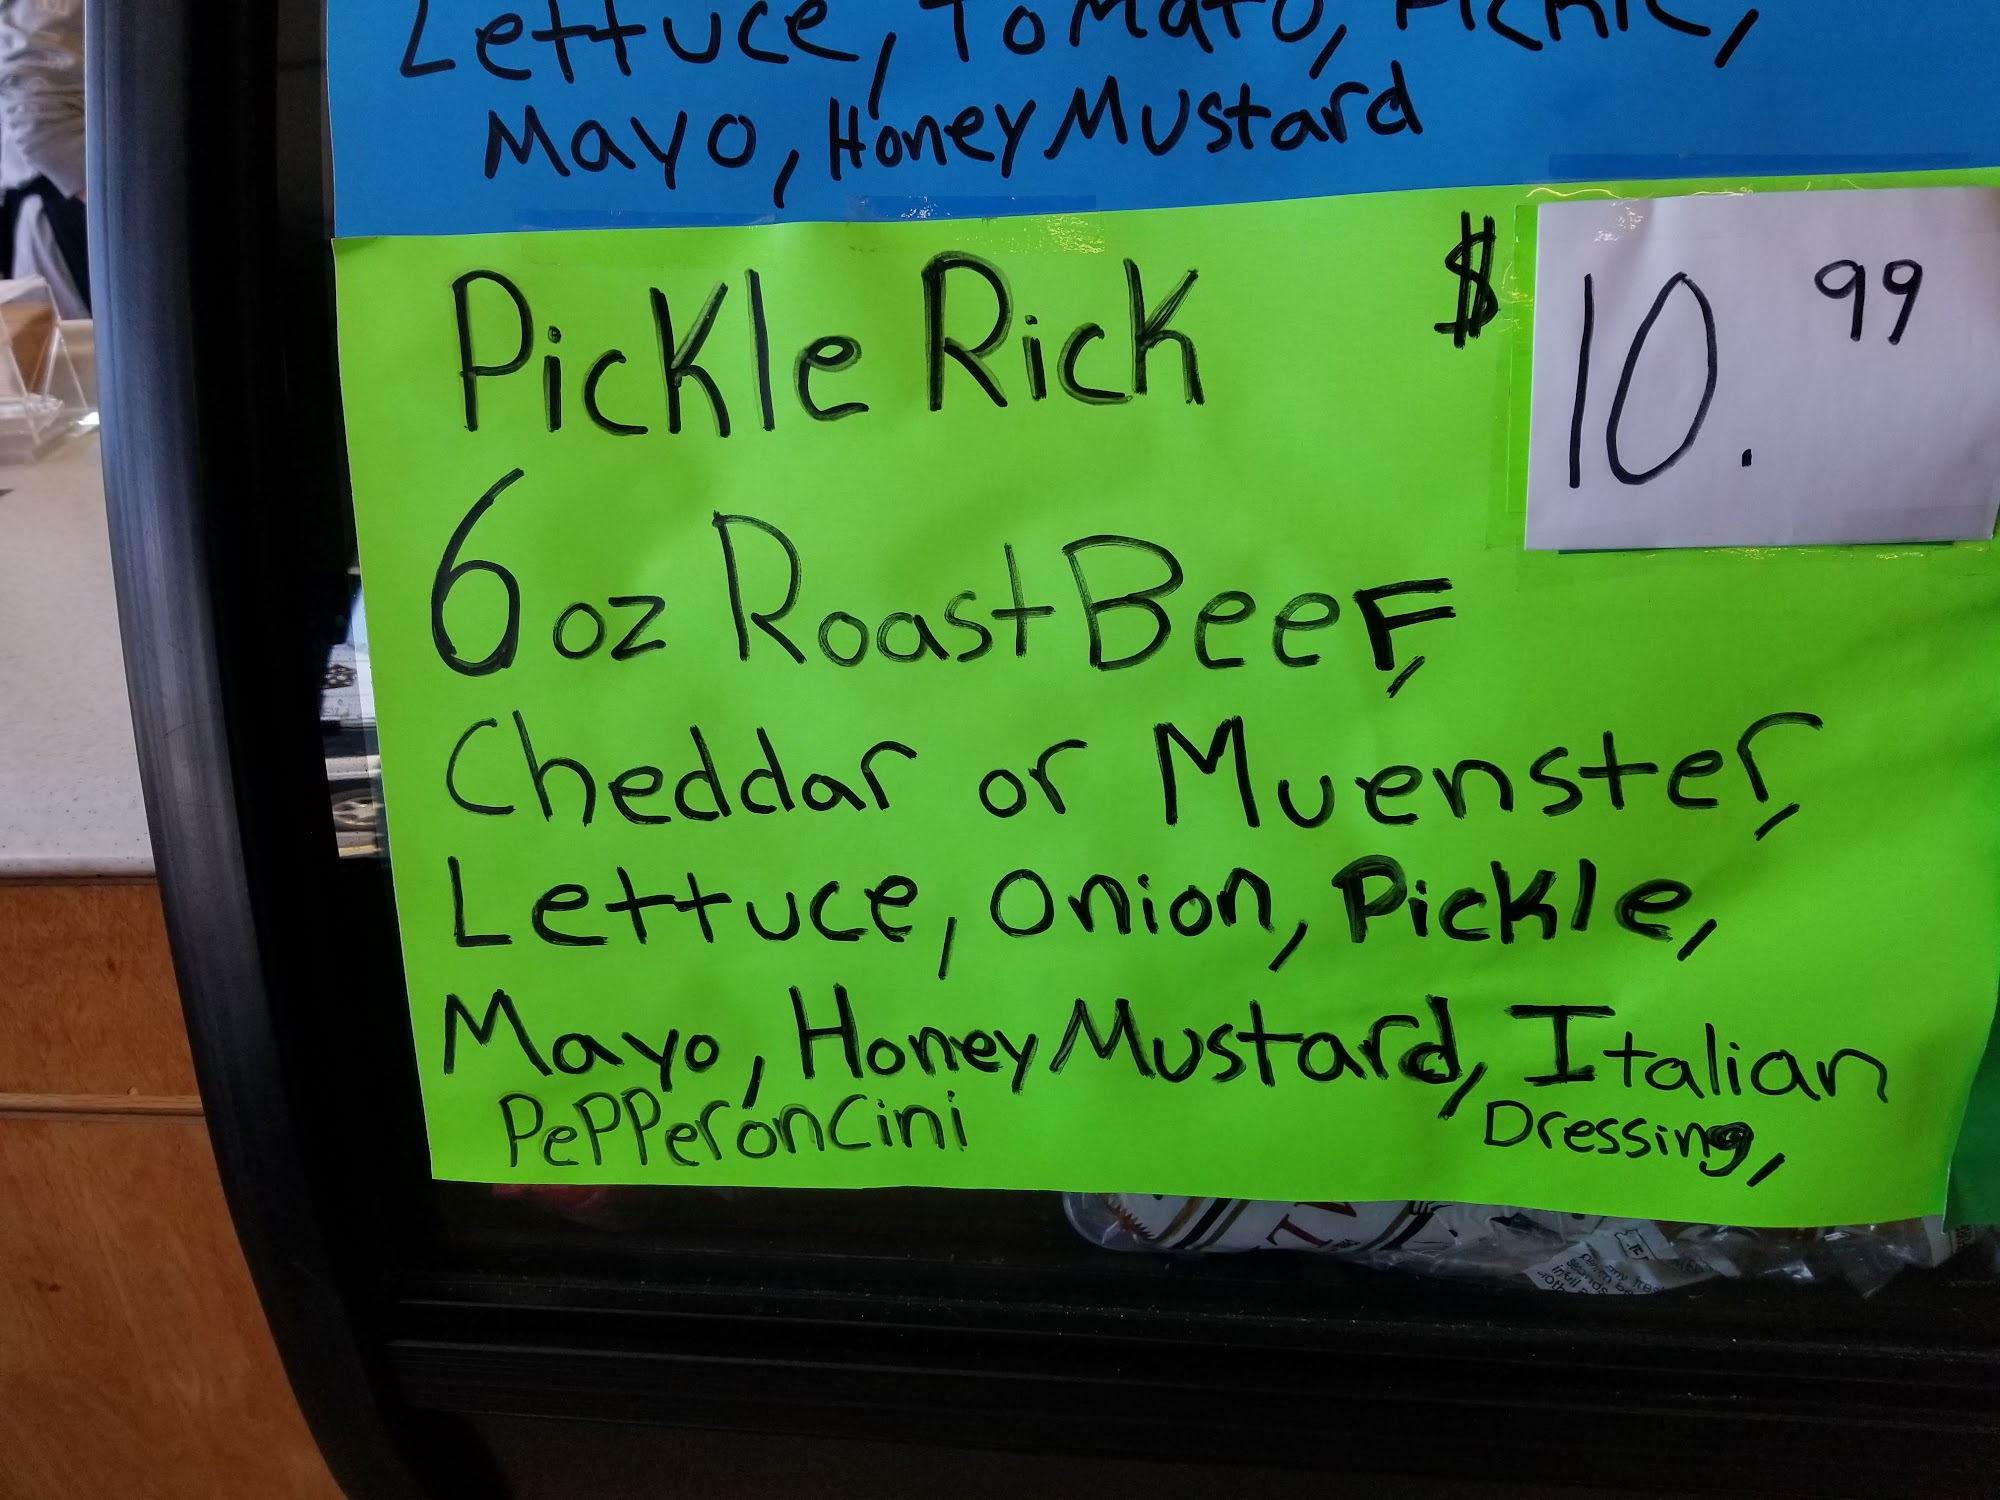 Lettuce, Tomato, Pickle,
Mayo, Honey Mustard
Pickle Rick $10.99
6 oz Roast Beef,
Cheddar or Muenster,
Lettuce, Onion, Pickle,
Mayo, Honey Mustard, Italian
Dressing,
Pepperoncini